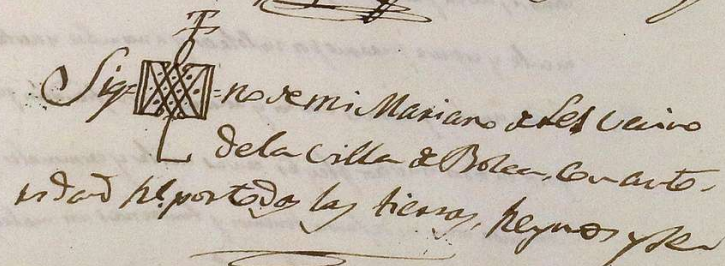 Sig= =no de mi Mariano de Les vecino
de la villa de Bolea, con auto=
ridad Rl. por todas las tierras, Reynos y Se